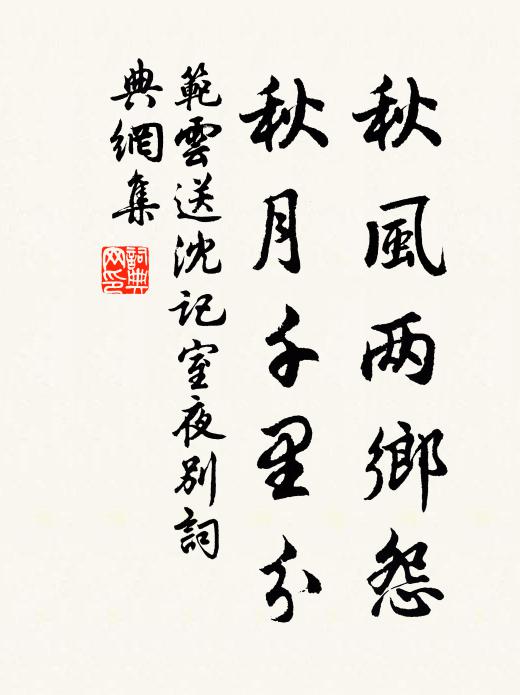 秋風两鄉怨
秋月千里分
範雲送沈記室夜別詞
典網集
詞典網印